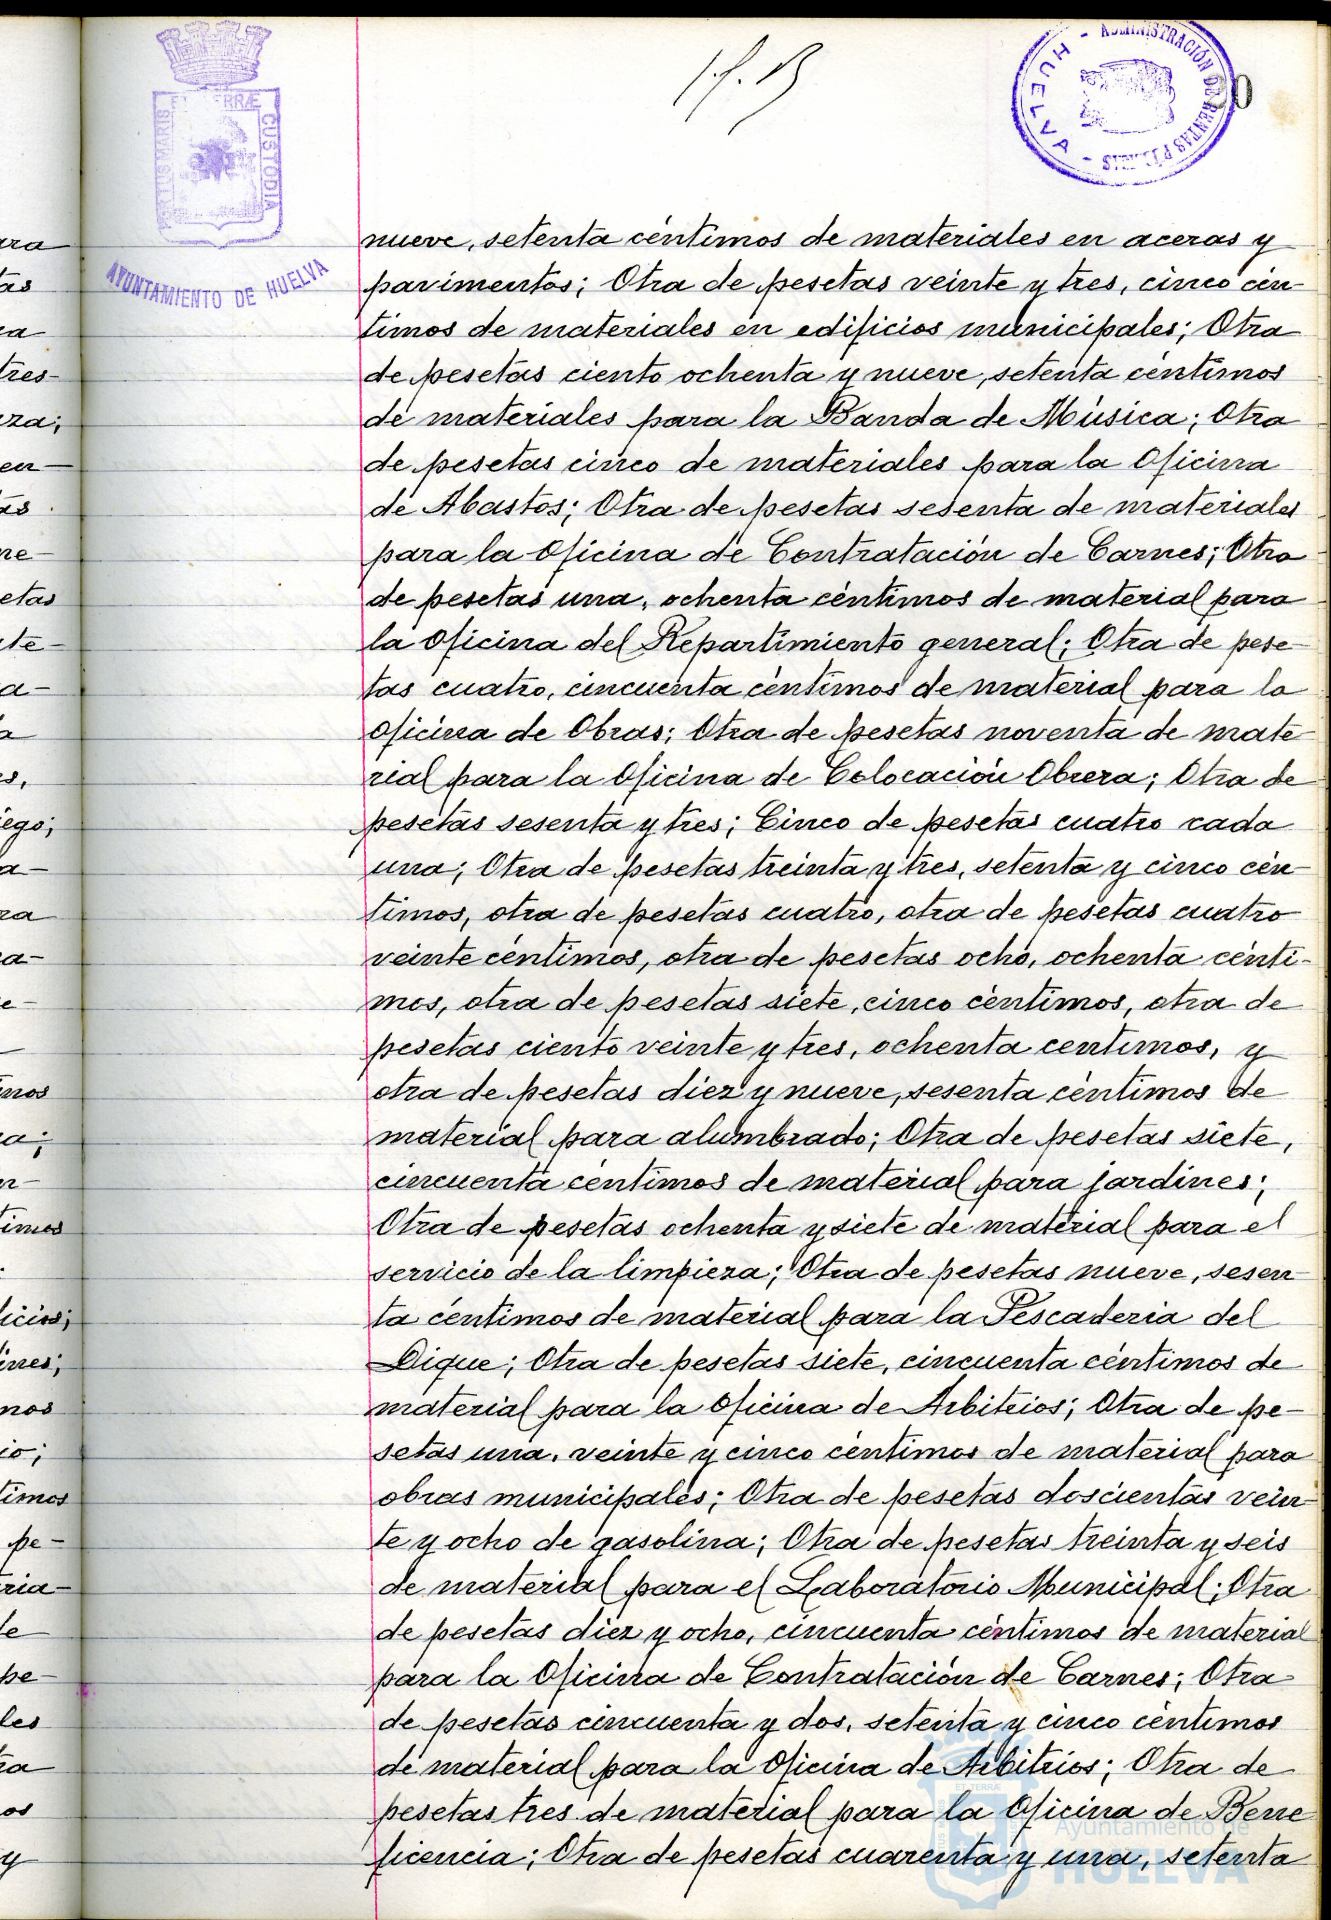 PORTUS MARIS ET TERRÆ CUSTODIA
AYUNTAMIENTO DE HUELVA
ADMINISTRACIÓN DE RENTAS PÚBLICAS - HUELVA -
nueve, setenta céntimos de materiales en aceras y
pavimentos; Otra de pesetas veinte y tres, cinco cén-
timos de materiales en edificios municipales; Otra
de pesetas ciento ochenta y nueve, setenta céntimos
de materiales para la Banda de Música; Otra
de pesetas cinco de materiales para la Oficina
de Abastos; Otra de pesetas sesenta de materiales
para la Oficina de Contratación de Carnes; Otra
de pesetas una, ochenta céntimos de material para
la Oficina del Repartimiento general; Otra de pese-
tas cuatro, cincuenta céntimos de material para la
Oficina de Obras; Otra de pesetas noventa de mate-
rial para la Oficina de Colocación Obrera; Otra de
pesetas sesenta y tres; Cinco de pesetas cuatro cada
una; Otra de pesetas treinta y tres, setenta y cinco cén-
timos, otra de pesetas cuatro, otra de pesetas cuatro
veinte céntimos, otra de pesetas ocho, ochenta cénti-
mos, otra de pesetas siete, cinco céntimos, otra de
pesetas ciento veinte y tres, ochenta centimos, y
otra de pesetas diez y nueve, sesenta céntimos de
material para alumbrado; Otra de pesetas siete,
cincuenta céntimos de material para jardines;
Otra de pesetas ochenta y siete de material para el
servicio de la limpieza; Otra de pesetas nueve, sesen-
ta céntimos de material para la Pescaderia del
Dique; Otra de pesetas siete, cincuenta céntimos de
material para la Oficina de Arbitrios; Otra de pe-
setas una, veinte y cinco céntimos de material para
obras municipales; Otra de pesetas doscientas vein-
te y ocho de gasolina; Otra de pesetas treinta y seis
de material para el Laboratorio Municipal; Otra
de pesetas diez y ocho, cincuenta céntimos de material
para la Oficina de Contratación de Carnes; Otra
de pesetas cincuenta y dos, setenta y cinco céntimos
de material para la Oficina de Arbitrios; Otra de
pesetas tres de material para la Oficina de Bene
ficencia; Otra de pesetas cuarenta y una, setenta
Ayuntamiento de
HUELVA